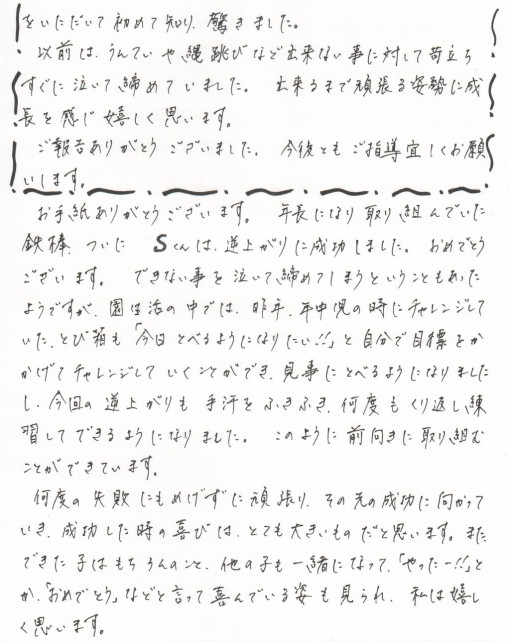 をいただいて初めて知り、驚きました。
以前は、うんていや縄跳びなど出来ない事に対して苛立ち
すぐに泣いて締めていました。 出来るまで頑張る姿勢に成
長を感じ嬉しく思います。
ご報告ありがとうございました。 今後ともご指導宜しくお願
いします。
お手紙ありがとうございます。 年長になり取り組んでいた
鉄棒、ついに Sくんは、逆上がりに成功しました。 おめでとう
ございます。 できない事を泣いて締めてしまうということもあった
ようですが、園生活の中では、昨年、年中児の時にチャレンジして
いた、とび箱も「今日とべるようになりたい!!」と自分で目標をか
かげてチャレンジしていくことができ、見事にとべるようになりました
し、今回の逆上がりも 手汗をふきふき、何度もくり返し練
習してできるようになりました。 このように前向きに取り組む
ことができています。
何度の失敗にもめげずに頑張り、その先の成功に向かって
いき、成功した時の喜びは、とても大きいものだと思います。また
できた子はもちろんのこと、他の子も一緒になって、「やったー!!」と
か、「おめでとう」などと言って喜んでいる姿も見られ、私は嬉し
く思います。